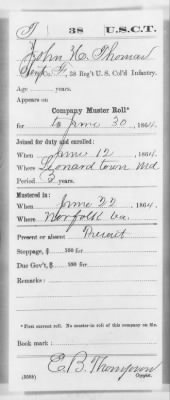 T | 38 | U.S.C.T.
John H. Thomas
Co. F, 38 Reg't U. S. Col'd Infantry.
Age years.
Appears on
Company Muster Roll*
for to June 30, 1864.
Joined for duty and enrolled:
When June 12, 1864.
Where Leonard town Md
Period 3 years.
Mustered in:
When June 22, 1864.
Where Norfolk Va.
Present or absent Present
Stoppage, $ 100 for
Due Gov't, $ 100 for
Remarks:
*First current roll. No muster-in roll of this company on file.
Book mark:
E. B. Thompson
(358h) Copyist.